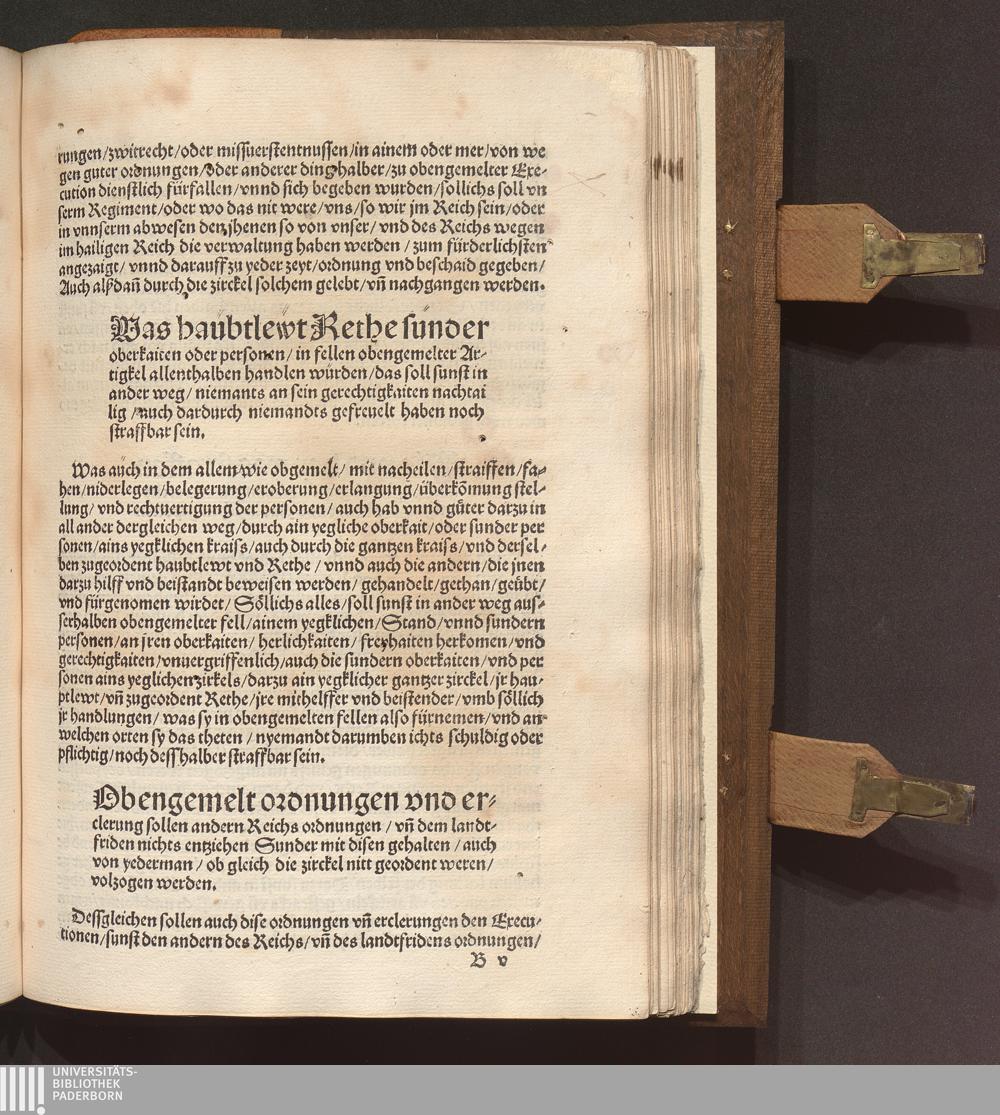 rungen/zwitrecht/oder missuerstentnussen/in ainem oder mer/von we
gen guter ordnungen/Oder anderer dinghalber/zu obengemelter Exe-
cution dienstlich fürfallen/vnnd sich begeben wurden/sollichs soll vn
serm Regiment/oder wo das nit were/vns/so wir jm Reich sein/oder
in vnnserm abwesen den jhenen so von vnser/vnd des Reichs wegen
im hailigen Reich die verwaltung haben werden/zum fürderlichsten
angezaigt/vnnd darauff zu yeder zeyt/ordnung vnd beschaid gegeben/
Auch alßdañ durch die zirckel solchem gelebt/vñ nachgangen werden.
Was haübtlewt Rethe sünder
oberkaiten oder personen/in fellen obengemelter Ar-
tigkel allenthalben handlen würden/das soll sunst in
ander weg/niemants an sein gerechtigkaiten nachtai
lig/auch dardurch niemandts gefreuelt haben noch
straffbar sein.
Was auch in dem allem/wie obgemelt/mit nacheilen/straiffen/fa-
hen/niderlegen/belegerung/eroberung/erlangung/überkõmung stel-
lung/vnd rechtuertigung der personen/auch hab vnnd güter darzu in
all ander dergleichen weg/durch ain yegliche oberkait/oder sunder per
sonen/ains yegklichen kraiss/auch durch die gantzen kraiss/vnd dersel-
ben zugeordent haubtlewt vnd Rethe/vnnd auch die andern/die jnen
darzu hilff vnd beistandt beweisen werden/gehandelt/gethan/geübt/
vnd fürgenomen wirdet/Söllichs alles/soll sunst in ander weg aus-
serhalben obengemelter fell/ainem yegklichen/Stand/vnnd sundern
personen/an jren oberkaiten/herlichkaiten/freyhaiten herkomen/vnd
gerechtigkaiten/vnuergriffenlich/auch die sundern oberkaiten/vnd per
sonen ains yeglichen zirkels/darzu ain yegklicher gantzer zirckel/jr hau-
ptlewt/vñ zugeordent Rethe/jre mithelffer vnd beistender/vmb söllich
jr handlungen/was sy in obengemelten fellen also fürnemen/vnd an
welchen orten sy das theten/nyemandt darumben ichts schuldig oder
pflichtig/noch dess halber straffbar sein.
Obengemelt ordnungen vnd er-
clerung sollen andern Reichs ordnungen/vñ dem landt-
friden nichts entziehen Sunder mit disen gehalten/auch
von yederman/ob gleich die zirckel nitt geordent weren/
volzogen werden.
Dessgleichen sollen auch dise ordnungen vñ erclerungen den Execu-
tionen/sunst den andern des Reichs/vñ des landtfridens ordnungen/
B v
UNIVERSITÄTS-
BIBLIOTHEK
PADERBORN